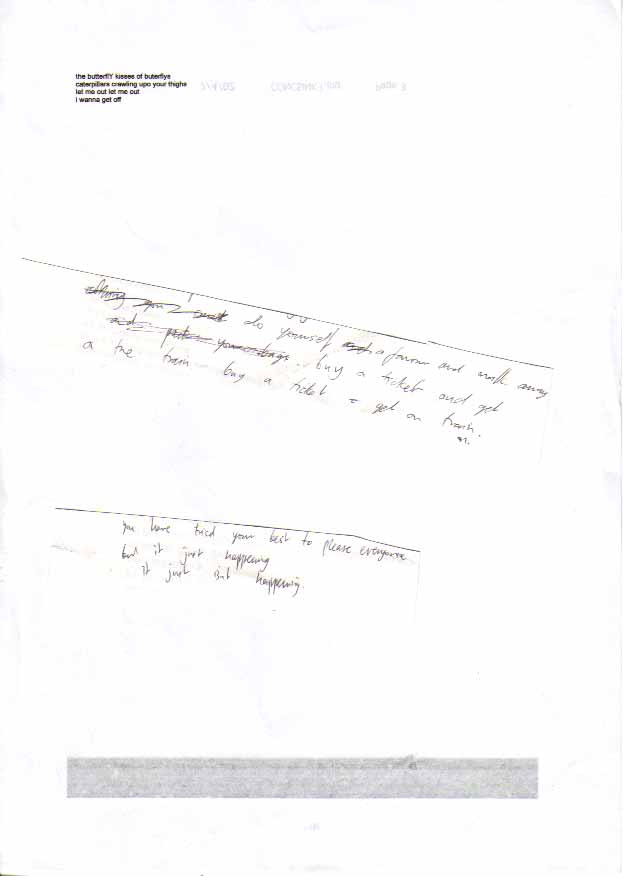 the butterflY kisses of buterflys
caterpillers crawling upo your thighs
let me out let me out
i wanna get off
Page 3
do yourself a favour and walk away
buy a ticket and get
a the train buy a ticket = get on train.
you have tried your best to please everyone
but it just happening
it just isnt happening.